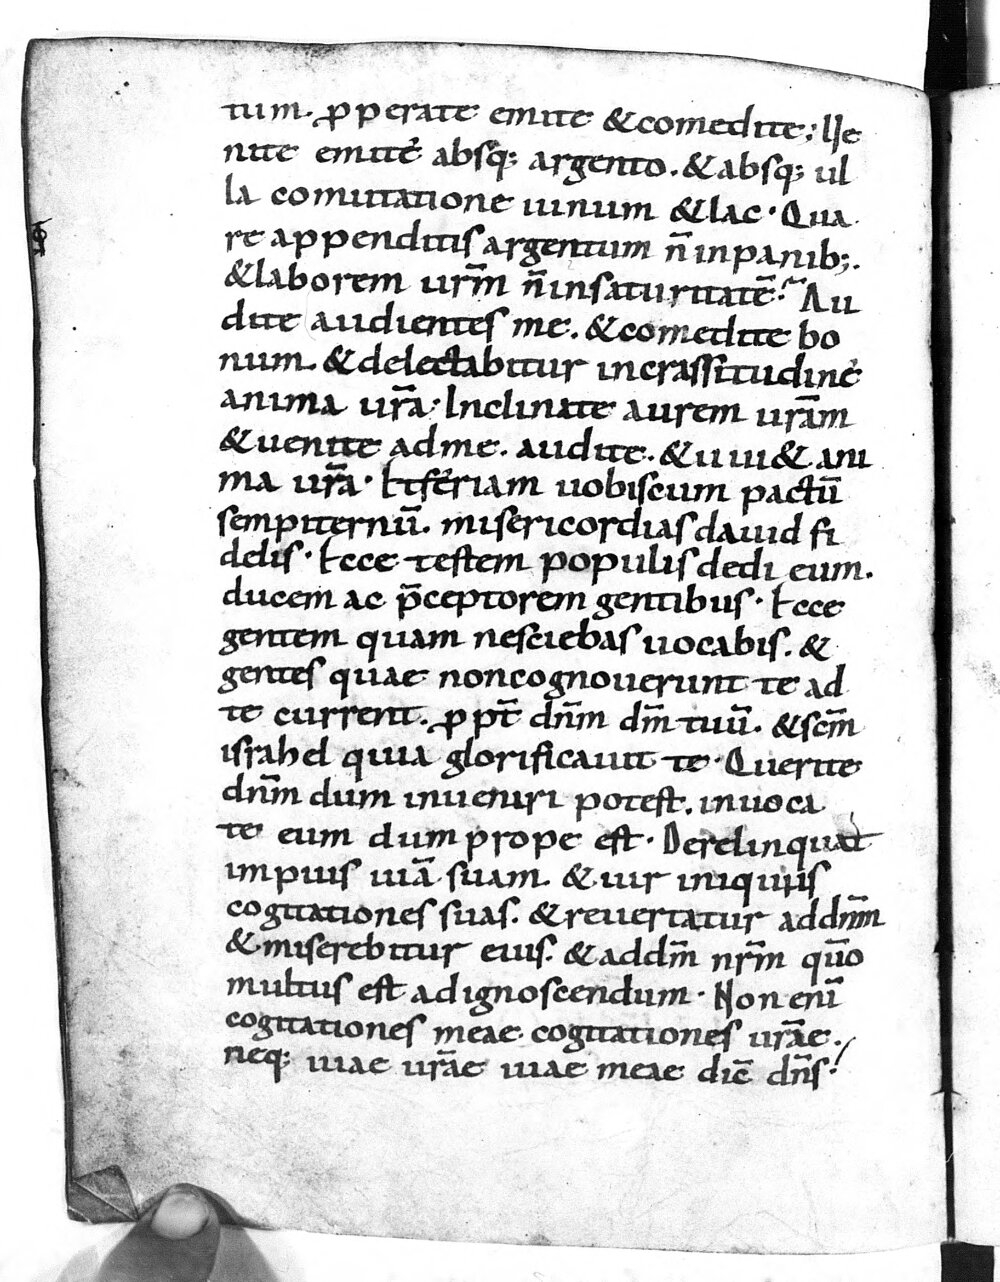 tum. ꝓperate emite & comedite; Ue
nite emite absq; argento. & absq; ul
la comutatione uinum & lac. Qua
re appenditis argentum n̄ in panib;.
& laborem ur̄m n̄ in saturitatē. Au
dite audientes me. & comedite bo
num. & delectabitur in crassitudine
anima ur̄a. Inclinate aurem ur̄am
& uenite ad me. audite. & uiu& ani
ma ur̄a. Et feriam uobiscum pactū
sempiternū. misericordias dauid fi
delis. Ecce testem populis dedi eum.
ducem ac p̄ceptorem gentibus. Ecce
gentem quam nesciebas uocabis. &
gentes quae non cognouerunt te ad
te current. ꝓpt̄ dn̄m dm̄ tuū. & scm̄
israhel quia glorificauit te. Querite
dn̄m dum inueniri potest. inuoca
te eum dum prope est. Derelinquat
impius uiā suam. & uir iniquus
cogitationes suas. & reuertatur ad dn̄m
& miserebitur eius. & ad dm̄ nr̄m qūo
multus est ad ignoscendum. Non enī
cogitationes meae cogitationes ur̄ae.
neq; uiae ur̄ae uiae meae dic̄ dn̄s.